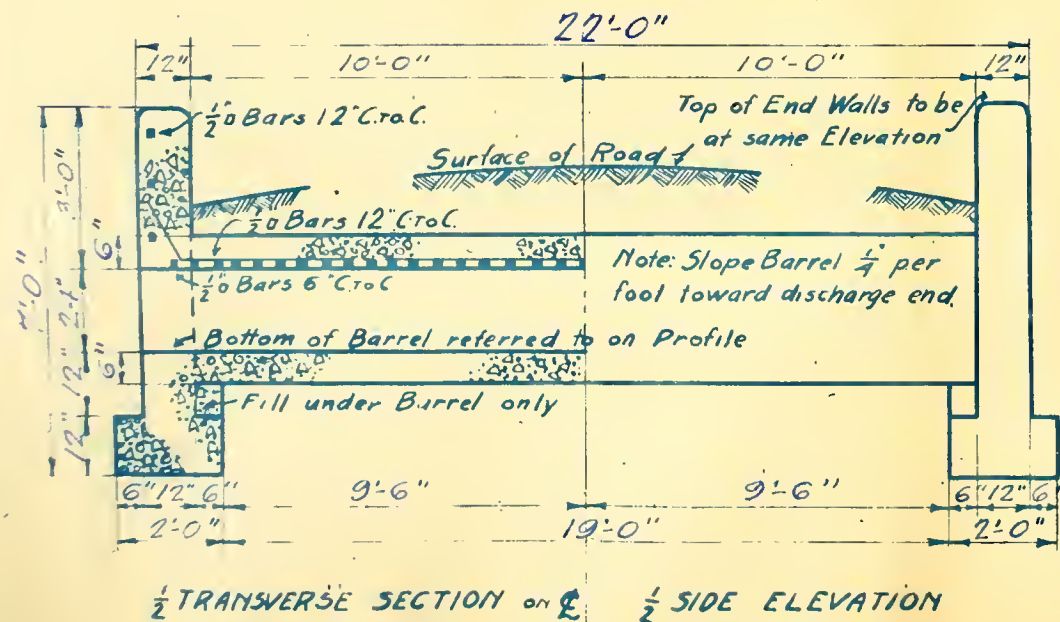 22'-0"
12" 10'-0" 10'-0" 12"
½"□ Bars 12" C.To.C.
Top of End Walls to be
at same Elevation
Surface of Road
½"□ Bars 12" C.To C.
6"
½"□ Bars 6" C.To C
Note: Slope Barrel ¼" per
foot toward discharge end.
Bottom of Barrel referred to on Profile
6"
12"
12"
Fill under Barrel only
6" 12" 6" 9'-6" 9'-6" 6" 12" 6"
2'-0" 19'-0" 2'-0"
½ TRANSVERSE SECTION on ℄ ½ SIDE ELEVATION